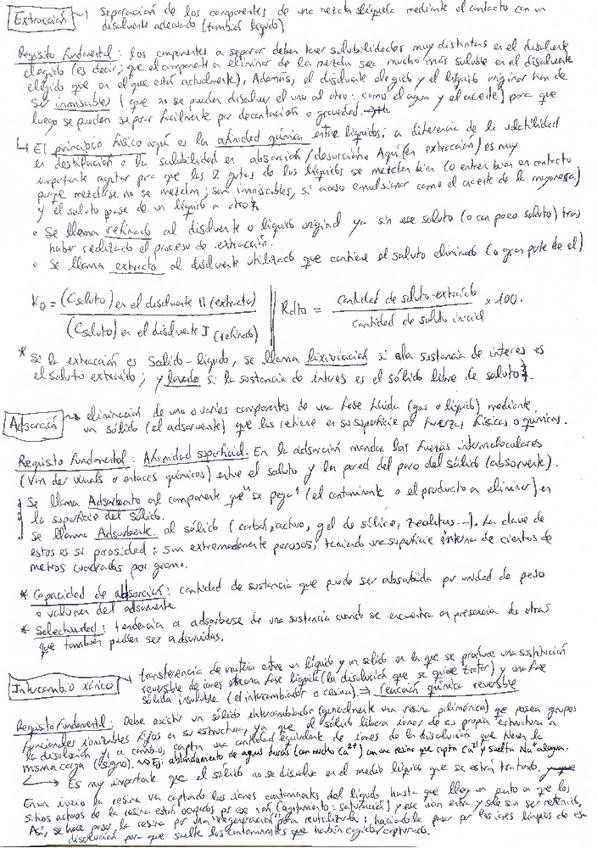 Extracción → separación de los componentes de una mezcla líquida mediante el contacto con un
disolvente adecuado (también líquido)
Requisito fundamental: los componentes a separar deben tener solubilidades muy distintas en el disolvente
elegido (es decir, que el componente a eliminar de la mezcla sea mucho más soluble en el disolvente
elegido que en el que está actualmente). Además, el disolvente elegido y el líquido original han de
ser inmiscibles (que no se puedan disolver el uno al otro: como el agua y el aceite) para que
luego se puedan separar fácilmente por decantación o gravedad.
El principio físico aquí es la afinidad química entre líquidos, a diferencia de la volatilidad
en destilación o la solubilidad en absorción/desorción. Aquí (en extracción) es muy
importante agitar para que las 2 gotas de los líquidos se mezclen bien (o entren bien en contacto
porque mezclarse no se mezclan; son inmiscibles, si acaso emulsionar como el aceite de la mayonesa)
y el soluto pase de un líquido a otro.
• Se llama refinado al disolvente o líquido original ya sin ese soluto (o con poco soluto) tras
haber realizado el proceso de extracción.
• Se llama extracto al disolvente utilizado que contiene el soluto eliminado (o gran parte de él)
K_D = (C soluto) en el disolvente II (extracto) / (C soluto) en el disolvente I (refinado)
Rdto = cantidad de soluto extraído / cantidad de soluto inicial × 100.
* Si la extracción es Sólido-líquido, se llama lixiviación si la sustancia de interés es
el soluto extraído; y lavado si la sustancia de interés es el sólido libre de soluto.
Adsorción → eliminación de uno o varios componentes de una fase fluida (gas o líquido) mediante
un sólido (el adsorvente) que los retiene en su superficie por fuerzas físicas o químicas.
Requisito fundamental: Afinidad superficial. En la adsorción mandan las fuerzas intermoleculares
(Van der Waals o enlaces químicos) entre el soluto y la pared del poro del sólido (absorvente).
Se llama Adsorbato al componente que "se pega" (el contaminante o el producto a eliminar) en
la superficie del sólido.
Se llama Adsorbente al sólido (carbón activo, gel de sílice, zeolitas...). La clave de
estos es su porosidad: son extremadamente porosos, teniendo una superficie interna de cientos de
metros cuadrados por gramo.
* Capacidad de absorción: cantidad de sustancia que puede ser absorbida por unidad de peso
o volumen del adsorvente
* Selectividad: tendencia a adsorberse de una sustancia cuando se encuentra en presencia de otras
que también pueden ser adsorvidas.
Intercambio iónico → transferencia de materia entre un líquido y un sólido en la que se produce una sustitución
reversible de iones entre una fase líquida (la disolución que se quiere tratar) y una fase
sólida insoluble (el intercambiador o resina) → reacción química reversible
Requisito fundamental: Debe existir un sólido intercambiador (generalmente una resina polimérica) que posea grupos
funcionales ionizables fijos en su estructura, ya que el sólido libera iones de su propia estructura a
la disolución y, a cambio, capta una cantidad equivalente de iones de la disolución que tienen la
misma carga (signo). Ej: ablandamiento de aguas duras (con mucho Ca²⁺) con una resina que capta Ca²⁺ y suelta Na⁺ al agua.
→ Es muy importante que el sólido no se disuelva en el medio líquido que se está tratando.
En un inicio la resina va captando los iones contaminantes del líquido hasta que llega un punto en que los
sitios activos de la resina están ocupados por ese ion (agotamiento: saturación) y ese ion entra y sale sin ser retenido.
Así, se hace pasar la resina por una "regeneración" para reutilizarla: haciendo pasar por los iones limpios de esa
disolución para que suelte los contaminantes que habían capturado.